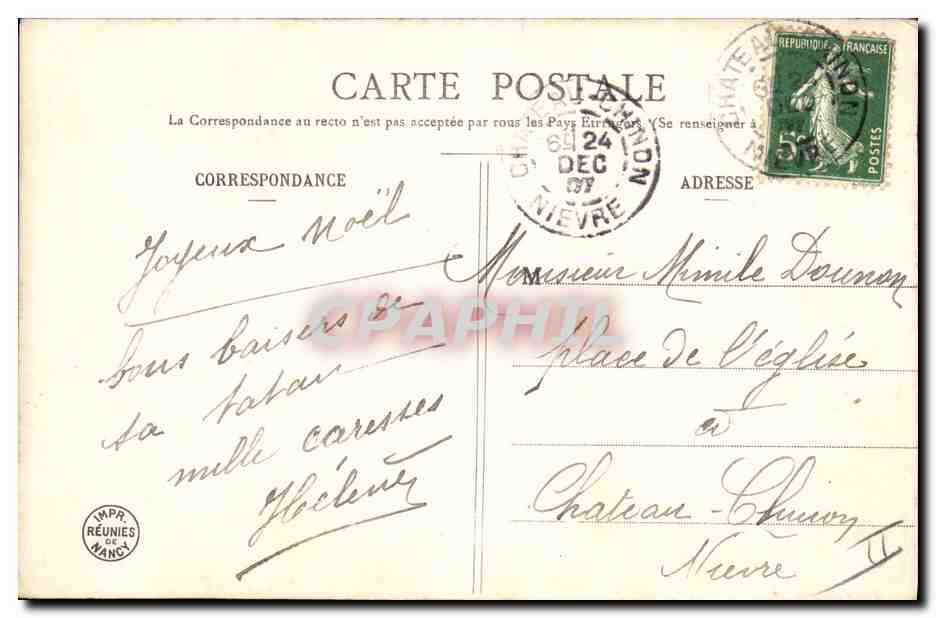 CARTE POSTALE
La Correspondance au recto n'est pas acceptée par tous les Pays Etrangers (Se renseigner à
CORRESPONDANCE
ADRESSE
CHATEAU-CHINON
24
DEC
07
NIEVRE
REPUBLIQUE FRANÇAISE
5c
POSTES
Joyeux Noël
bons baisers de
ta tatan
mille caresses
Hélène
M
Monsieur Mimile Dounon
place de l'église
à
Chateau-Chinon
Nièvre
II
CPAPHIL
IMPR.
RÉUNIES
DE
NANCY